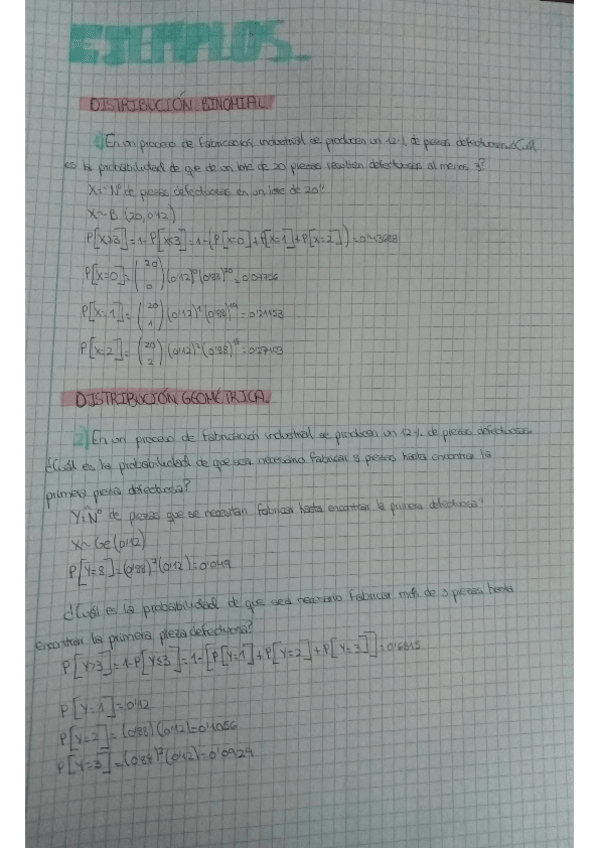 EJEMPLOS.
DISTRIBUCIÓN BINOMIAL
1) En un proceso de fabricación industrial se producen un 12% de piezas defectuosas ¿Cuál
es la probabilidad de que de un lote de 20 piezas resulten defectuosas al menos 3?
X="Nº de piezas defectuosas en un lote de 20"
X~B (20,0'12)
P[X≥3]=1-P[X<3]=1-(P[X=0]+P[X=1]+P[X=2])=
P[X=0]=(20 0)(0'12)⁰(0'88)²⁰=0'07756
P[X=1]=(20 1)(0'12)¹(0'88)¹⁹=0'21153
P[X=2]=(20 2)(0'12)²(0'88)¹⁸=
DISTRIBUCIÓN GEOMÉTRICA.
2) En un proceso de fabricación industrial se producen un 12% de piezas defectuosas
¿Cuál es la probabilidad de que sea necesario fabricar 8 piezas hasta encontrar la
primera pieza defectuosa?
Y="Nº de piezas que se necesitan fabricar hasta encontrar la primera defectuosa"
X~Ge(0'12)
P[Y=8]=(0'88)⁷(0'12)=0'049
¿Cuál es la probabilidad de que sea necesario fabricar más de 3 piezas hasta
encontrar la primera pieza defectuosa?
P[Y>3]=1-P[Y≤3]=1-[P[Y=1]+P[Y=2]+P[Y=3]]=0'6815
P[Y=1]=0'12
P[Y=2]=(0'88)(0'12)=0'1056
P[Y=3]=(0'88)²(0'12)=0'0929